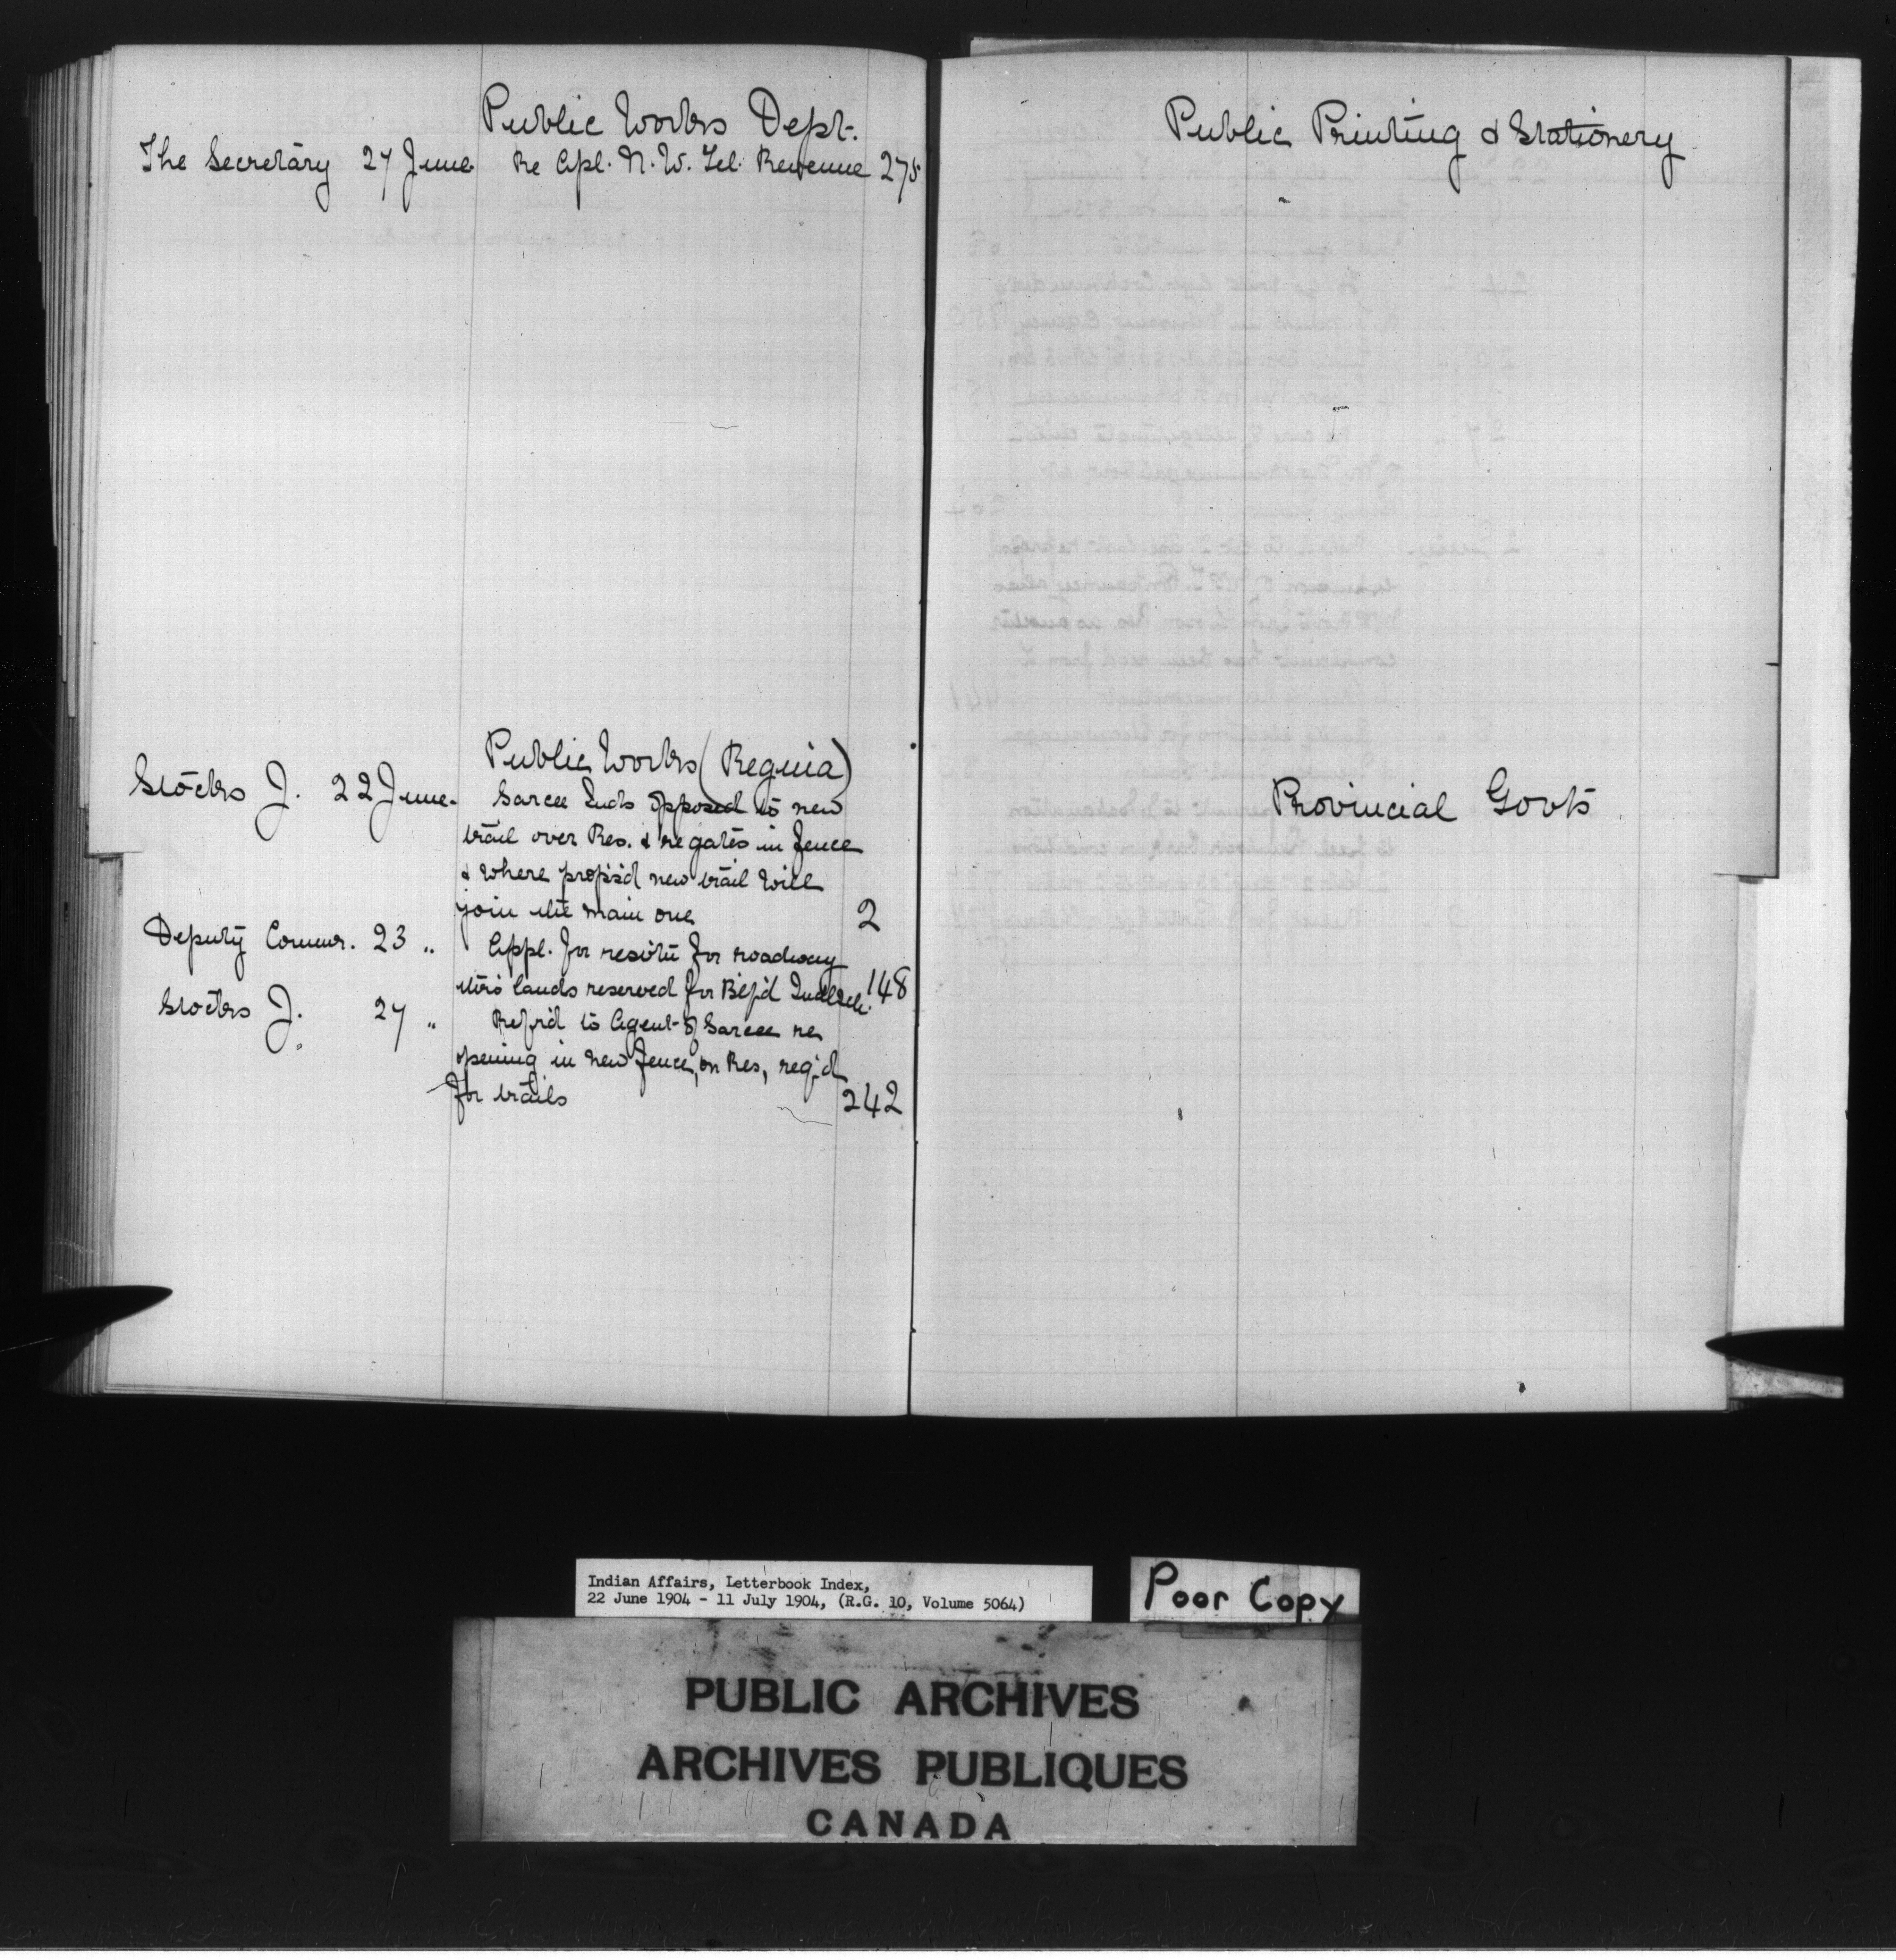 Public Works Dept.
The Secretary 27 June Re Apl. N. W. Tel. Revenue 275
Public Works (Regina)
Stocks J. 22 June. Sarcee Inds opposed to new
trail over Res. & re gates in fence
& where propos'd new trail will
join the main one 2
Deputy Commr. 23 " Appl. for
for roadway
thro lands reserved for
148
Stocks J. 27 " Refr'd to Agent of Sarcee re
opening in new fence, on Res, req'd
for trails 242
Public Printing & Stationery
Provincial Govts
Indian Affairs, Letterbook Index,
22 June 1904 - 11 July 1904, (R.G. 10, Volume 5064)
Poor Copy
PUBLIC ARCHIVES
ARCHIVES PUBLIQUES
CANADA